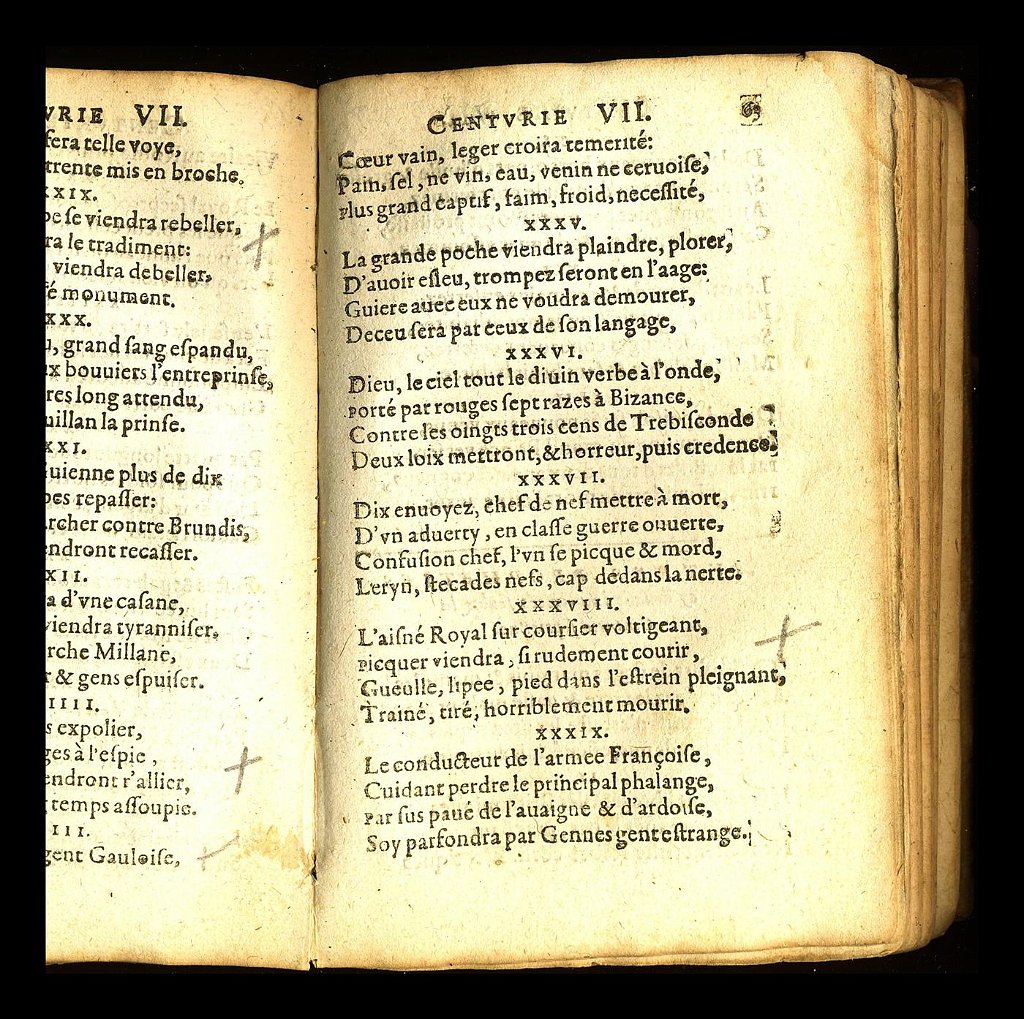 VRIE VII.
fera telle voye,
trente mis en broche.
XXIX.
se viendra rebeller,
ra le tradiment:
viendra debeller,
é monument.
XXX.
grand sang espandu,
x bouuiers l'entreprinse,
res long attendu,
uillan la prinse.
XXI.
uienne plus de dix
pes repasser:
rcher contre Brundis,
endront recasser.
XII.
a d'vne casane,
viendra tyranniser,
rche Millane,
r & gens espuiser.
IIII.
s expolier,
ges à l'espie,
endront r'allier,
temps assoupie.
III.
gent Gauloise,
CENTVRIE VII. 65
Cœur vain, leger croira temerité:
Pain, sel, ne vin, eau, venin ne ceruoise,
Plus grand captif, faim, froid, necessité,
XXXV.
La grande poche viendra plaindre, plorer,
D'auoir esleu, trompez seront en l'aage:
Guiere auec eux ne voudra demourer,
Deceu sera par ceux de son langage,
XXXVI.
Dieu, le ciel tout le diuin verbe à l'onde,
Porté par rouges sept razes à Bizance,
Contre les oingts trois cens de Trebisconde
Deux loix mettront, & horreur, puis credence.
XXXVII.
Dix enuoyez, chef de nef mettre à mort,
D'vn aduerty, en classe guerre ouuerte,
Confusion chef, l'vn se picque & mord,
Leryn, stecades nefs, cap dedans la nerte.
XXXVIII.
L'aisné Royal sur coursier voltigeant,
Picquer viendra, si rudement courir,
Gueulle, lipee, pied dans l'estrein pleignant,
Trainé, tiré, horriblement mourir.
XXXIX.
Le conducteur de l'armee Françoise,
Cuidant perdre le principal phalange,
Par sus paué de l'auaigne & d'ardoise,
Soy parfondra par Gennes gent estrange.